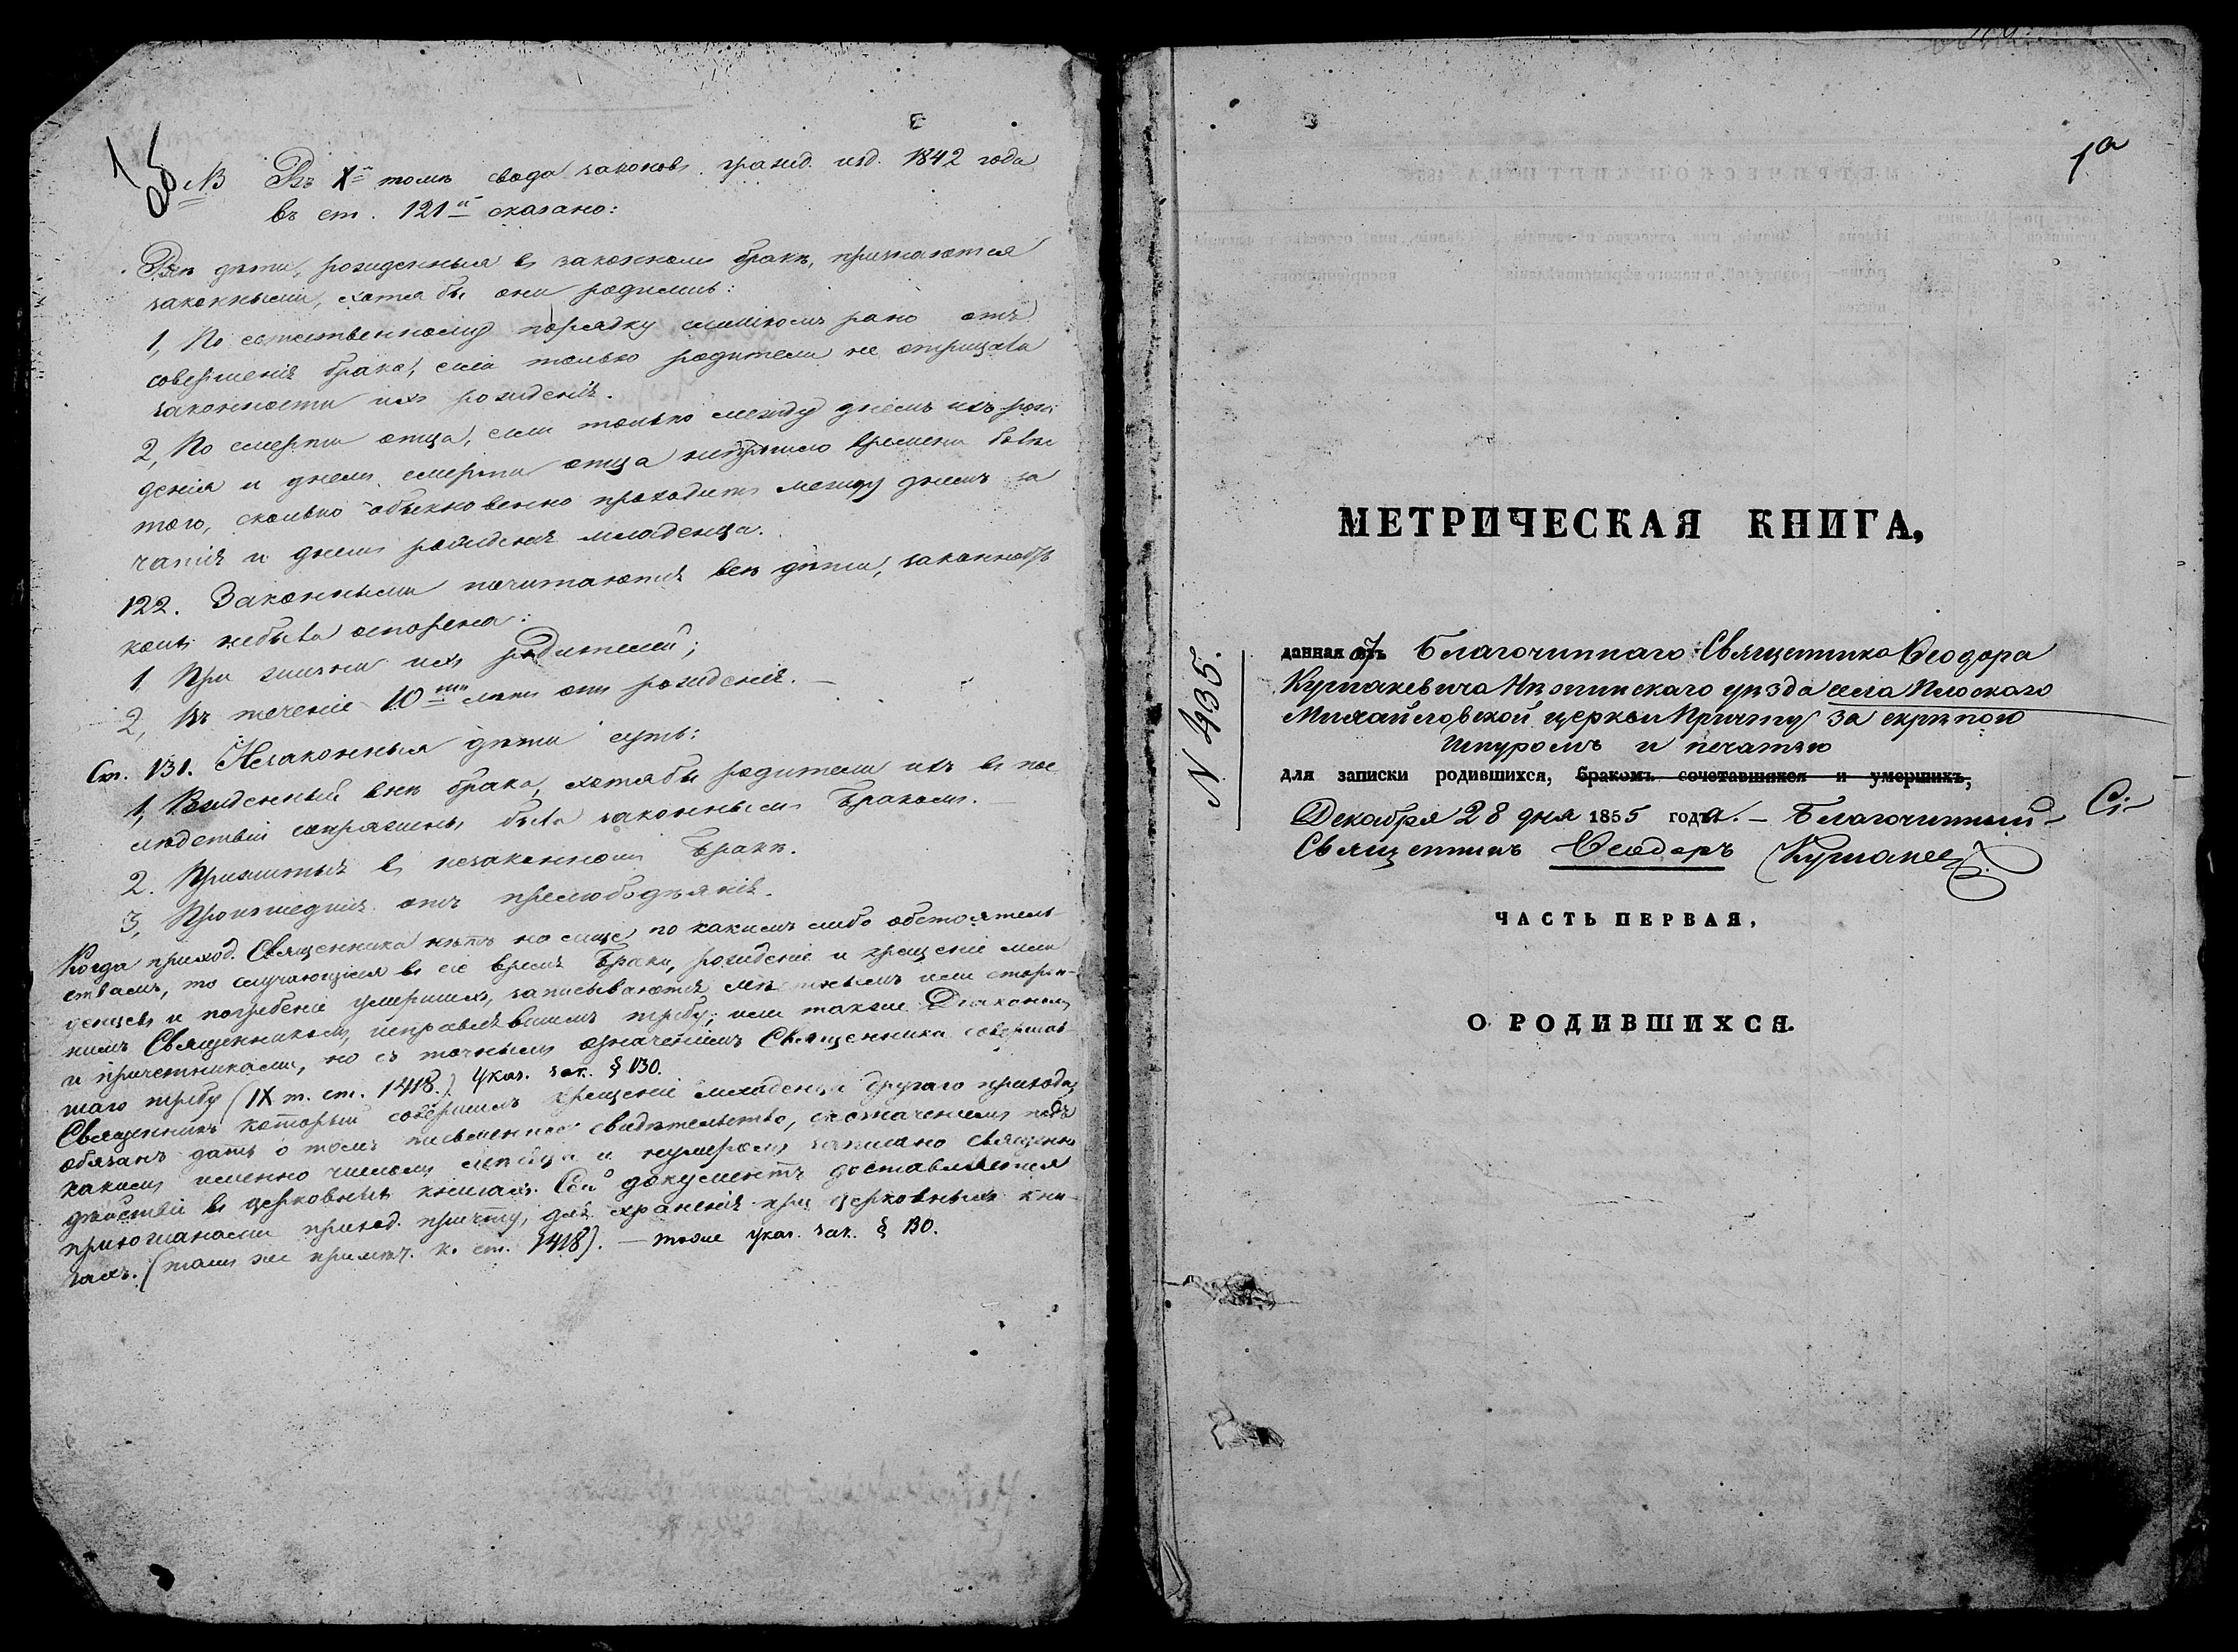 NB Въ Xм томѣ свода законовъ гражд. изд. 1842 года
въ ст. 121й сказано:
Всѣ дѣти, рожденныя въ законномъ бракѣ, признаются
законными, хотя бы они родились:
1, По естественному порядку слишкомъ рано отъ
совершенія брака, если только родители не отрицали
законности ихъ рожденія.
2, По смерти отца, если только между днемъ ихъ рож
денія и днемъ смерти отца не прошло времени болѣе
того, сколько обыкновенно проходитъ между днемъ за
чатія и днемъ рожденія младенца.
122. Законными почитаются всѣ дѣти, законность
коихъ не была оспорена:
1 При жизни ихъ родителей;
2, Въ теченіе 10ти лѣтъ отъ рожденія. —
Ст. 131. Незаконныя дѣти суть:
1, Рожденныя внѣ брака, хотя бы родители ихъ въ пос
лѣдствіи сопряжены были законнымъ бракомъ. —
2. Прижитыя въ незаконномъ бракѣ.
3, Происшедшія отъ прелюбодѣянія.
Когда приход. Священника нѣтъ на лице по какимъ либо обстоятель
ствамъ, то случающіяся въ сіе время браки, рожденіе и крещеніе мла
денцевъ и погребеніе умершихъ, записываются мѣстнымъ или сторон-
нимъ Священникомъ, исправлявшимъ требу, или также Діакономъ
и причетниками, но съ точнымъ означеніемъ Священника совершав
шаго требу (IX т. ст. 1418.) Указ. зак. § 130.
Священникъ который совершилъ крещеніе младенца другаго прихода,
обязанъ дать о томъ письменное свидѣтельство, съ означеніемъ подъ
какимъ именно числомъ мѣсяца и нумеромъ записано священно
дѣйствіе въ церковныхъ книгахъ. Сей документъ доставляется
прихожанами приход. причту, для храненія при церковныхъ кни-
гахъ. (тамъ же примѣч. къ ст. 1418). — тоже указ. зак. § 130.
1а
МЕТРИЧЕСКАЯ КНИГА,
N 435.
данная отъ Благочиннаго Священника Ѳеодора
Нѣжинскаго уѣзда села Плоскаго
Михайловской церкви Причту за скрѣпою
шнуромъ и печатью
для записки родившихся, бракомъ сочетавшихся и умершихъ,
Декабря 28 дня 1855 года. — Благочинный
Священникъ Ѳеодоръ
ЧАСТЬ ПЕРВАЯ,
О РОДИВШИХСЯ.